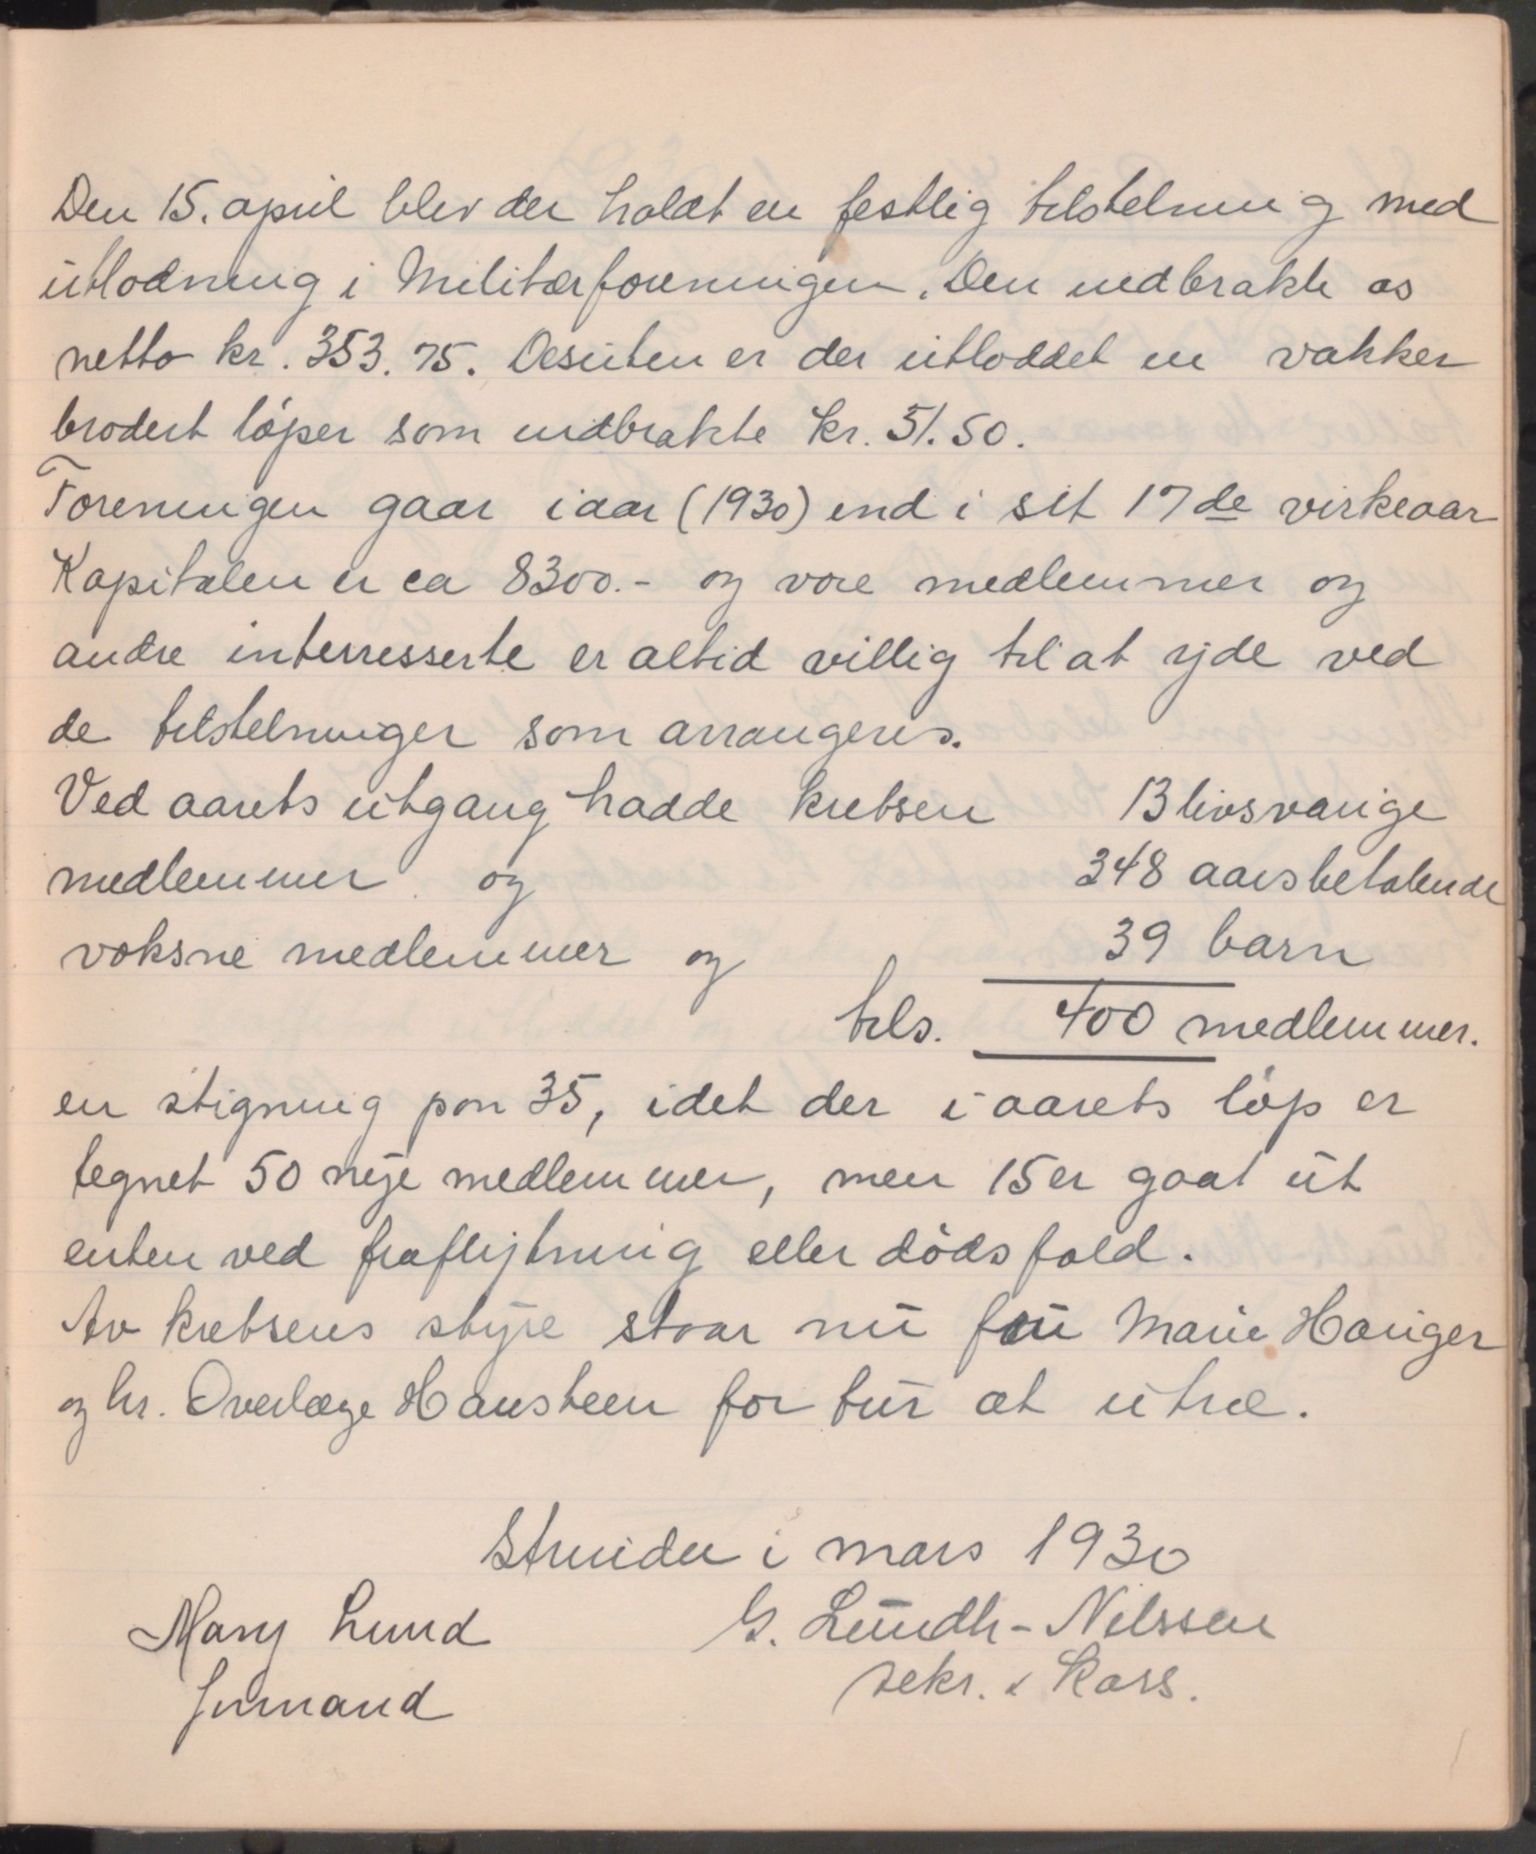 Den 15. april blev der holdt en festlig tilstelning med
utlodning i Militærforeningen. Den indbrakte os
netto kr. 353.75. Desuten er der utloddet en vakker
brodert løper som indbrakte kr. 51.50.
Foreningen gaar iaar (1930) ind i sit 17de virkeaar
Kapitalen er ca 8300.- og vore medlemmer og
andre interresserte er altid villig til at yde ved
de tilstelninger som arrangeres.
Ved aarets utgang hadde kretsen 13 livsvarige
medlemmer og 348 aarsbetalende
voksne medlemmer og 39 barn
tils. 400 medlemmer.
en stigning paa 35, idet der i aarets løp er
tegnet 50 nye medlemmer, men 15 er gaat ut
enten ved fraflytning eller dødsfald.
Av kretsens styre staar nu fru Marie Hauger
og hr. Overlæge Hansteen for tur at utræ.
i mars 1930
Mary Lund G. Lundh-Nilssen
Formand sekr. & Kass.